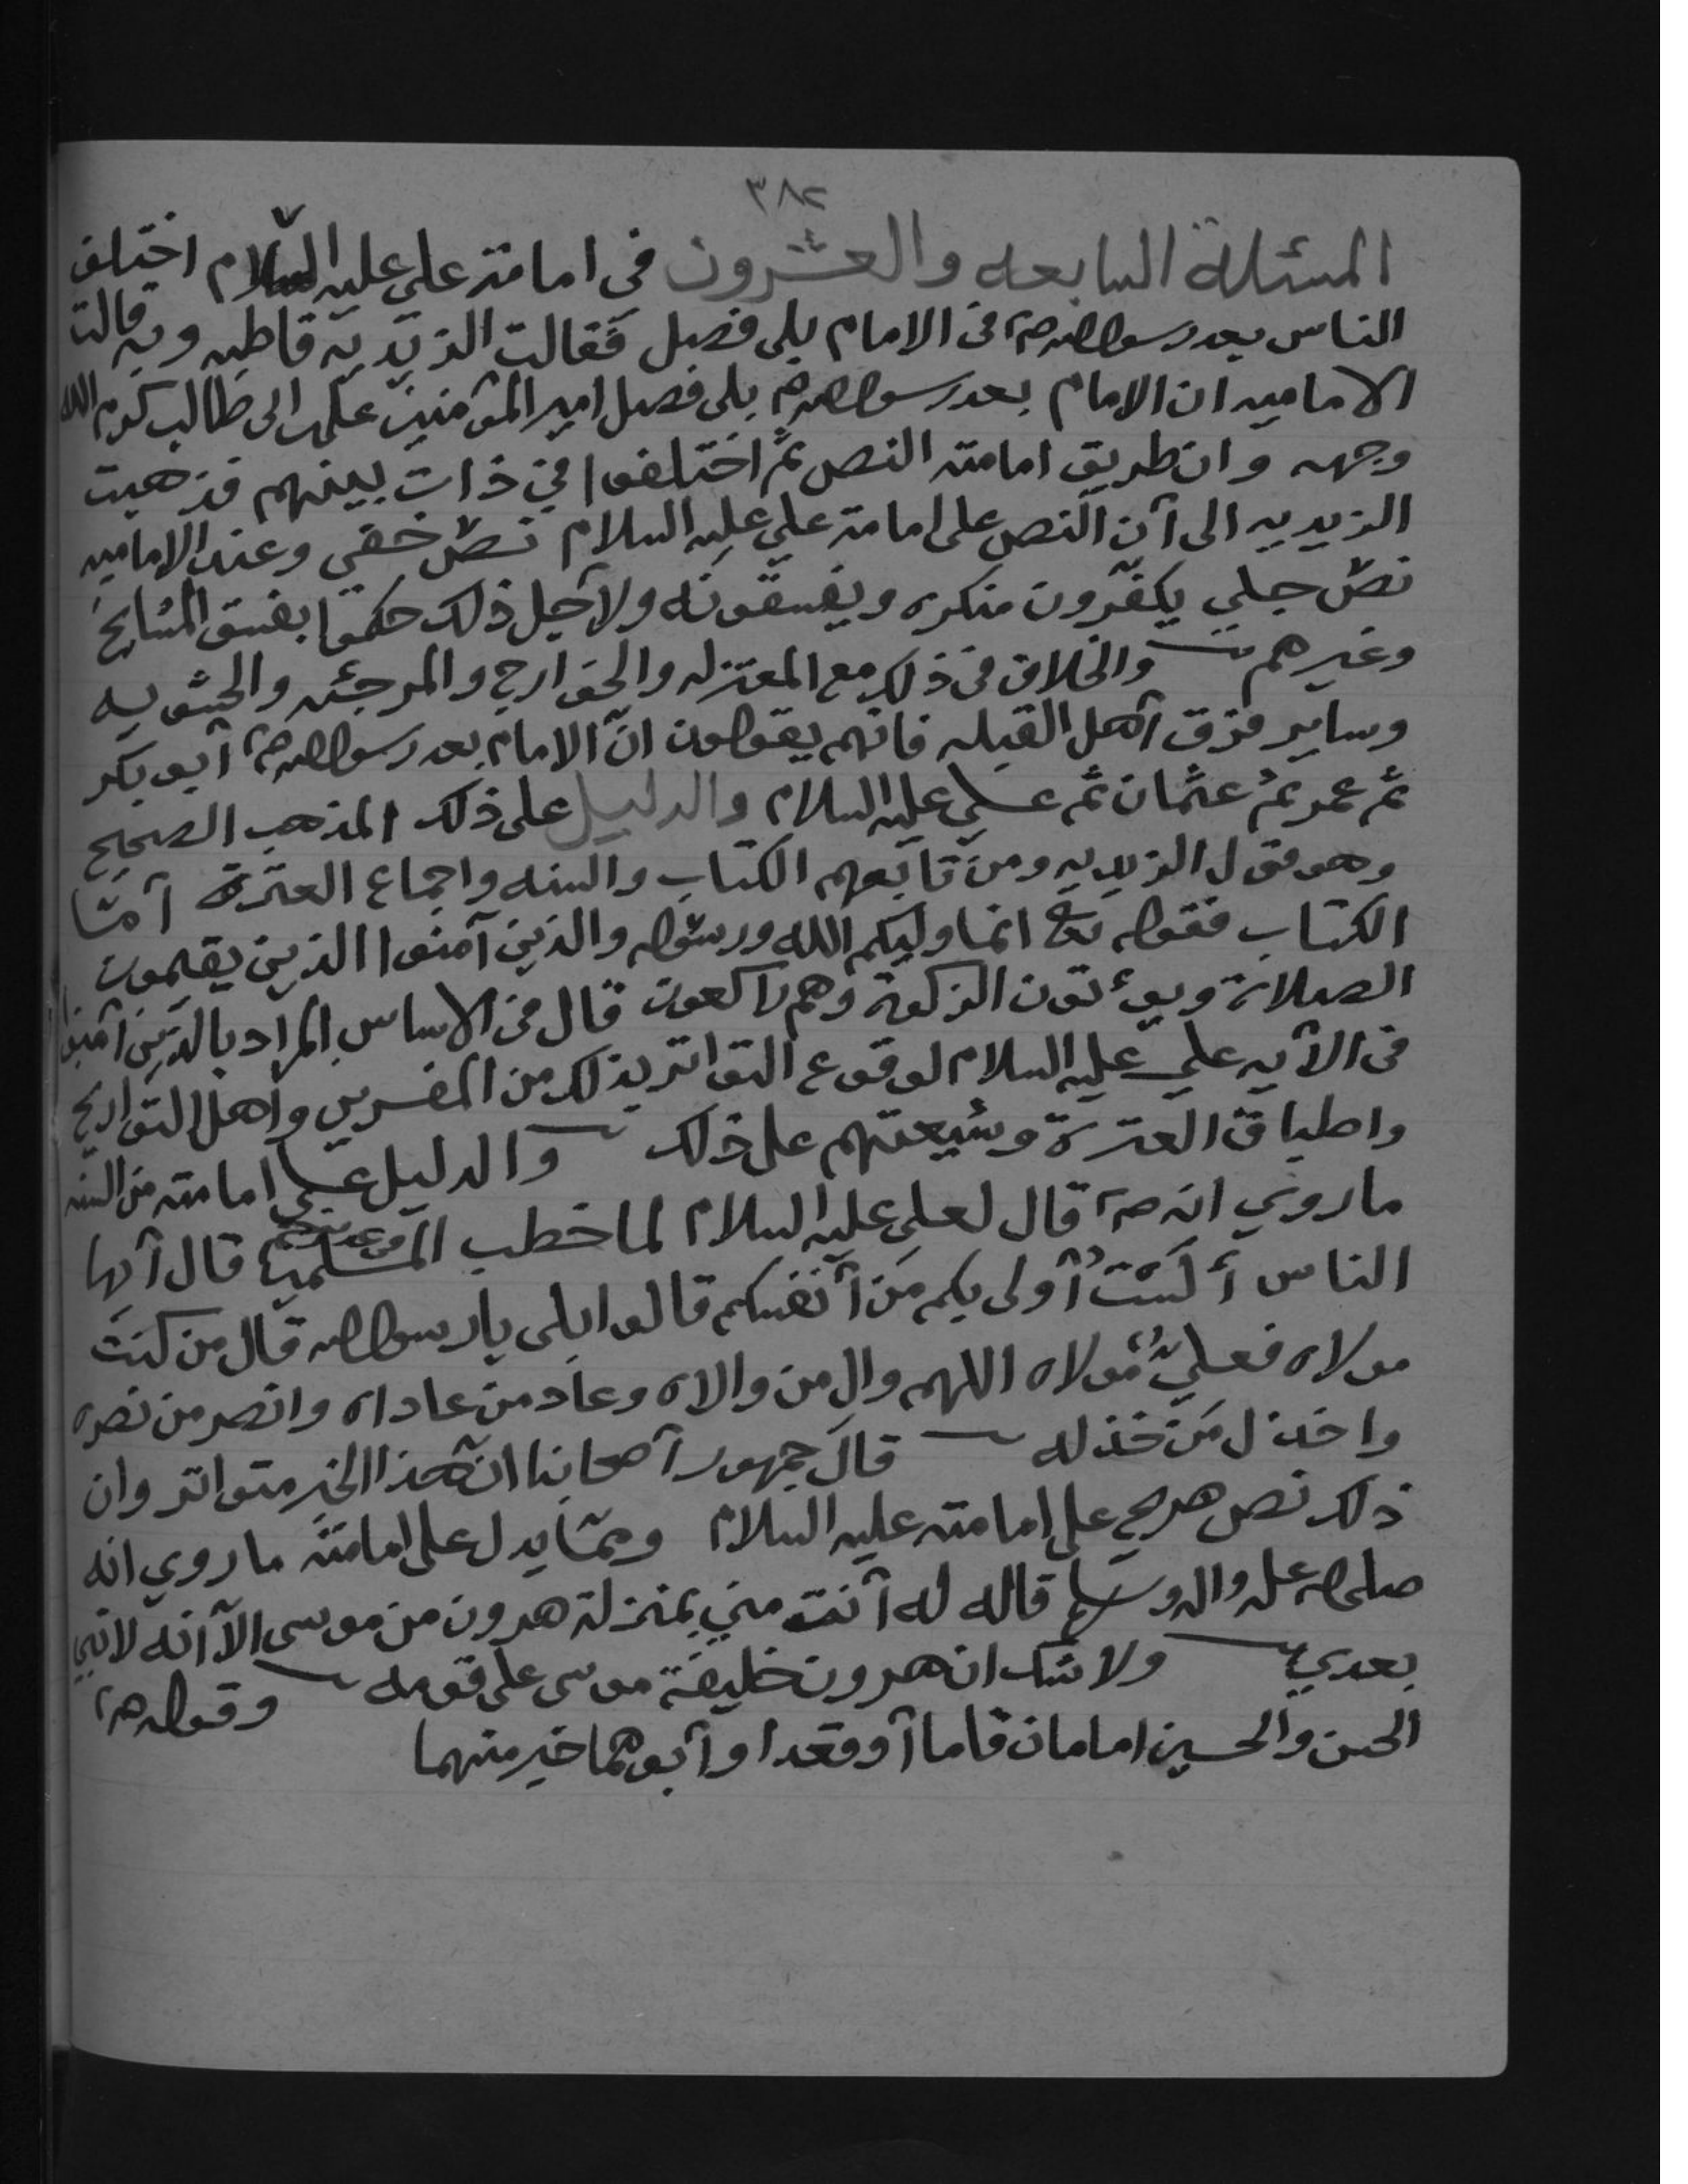 ٣٨٢
المسئلة السابعه والعشرون في امامة علي عليه السلام اختلف
الناس بعد رسول الله صم في الامام بلى فصل فقالت الزيدية قاطبه وبه قالت
الاماميه ان الامام بعد رسول الله صم بلى فصل امير المؤمنين علي بن ابي طالب كرم الله
وجهه وان طريق امامته النص ثم اختلفوا في ذات بينهم فذهبت
الزيديه الى أن النص على امامة علي عليه السلام نصّ خفي وعند الاماميه
نصّ جلي يكفّرون منكره ويفسقونه ولأجل ذلك حكموا بفسق المشايخ
وغيرهم والخلاف في ذلك مع المعتزله والخوارج والمرجئه والحشويه
وساير فرق أهل القبله فانهم يقولون انّ الامام بعد رسول الله صم أبو بكر
ثم عمر ثم عثمان ثم علي عليه السلام والدليل على ذلك المذهب الصحيح
وهو قول الزيديه ومن تابعهم الكتاب والسنه واجماع العترة أمّا
الكتاب فقوله تع انما وليكم الله ورسوله والذين آمنوا الذين يقيمون
الصلاة ويؤتون الزكوة وهم راكعون قال في الاساس المراد بالذين آمنوا
في الآيه علي عليه السلام لوقوع التواتر بذلك من المفسرين وأهل التواريخ
واطباق العترة وشيعتهم على ذلك والدليل على امامته من السنه
ماروي انه صم قال لعلي عليه السلام لما خطب المسلمين قال أيها
الناس ألست أولى بكم من أنفسكم قالوا بلى يا رسول الله قال من كنت
مولاه فعليٌ مولاه اللهم وال من والاه وعاد من عاداه وانصر من نصره
واخذل من خذله قال جمهور أصحابنا ان هذا الخبر متواتر وان
ذلك نص صريح على امامته عليه السلام وممّا يدل على امامته ما روي انه
صلى الله عليه واله وسلم قاله له أنت مني بمنزلة هرون من موسى الاّ أنه لا نبي
بعدي ولا شك ان هرون خليفة موسى على قومه وقوله صم
الحسن والحسين امامان قاما أو قعدا وأبوهما خير منهما